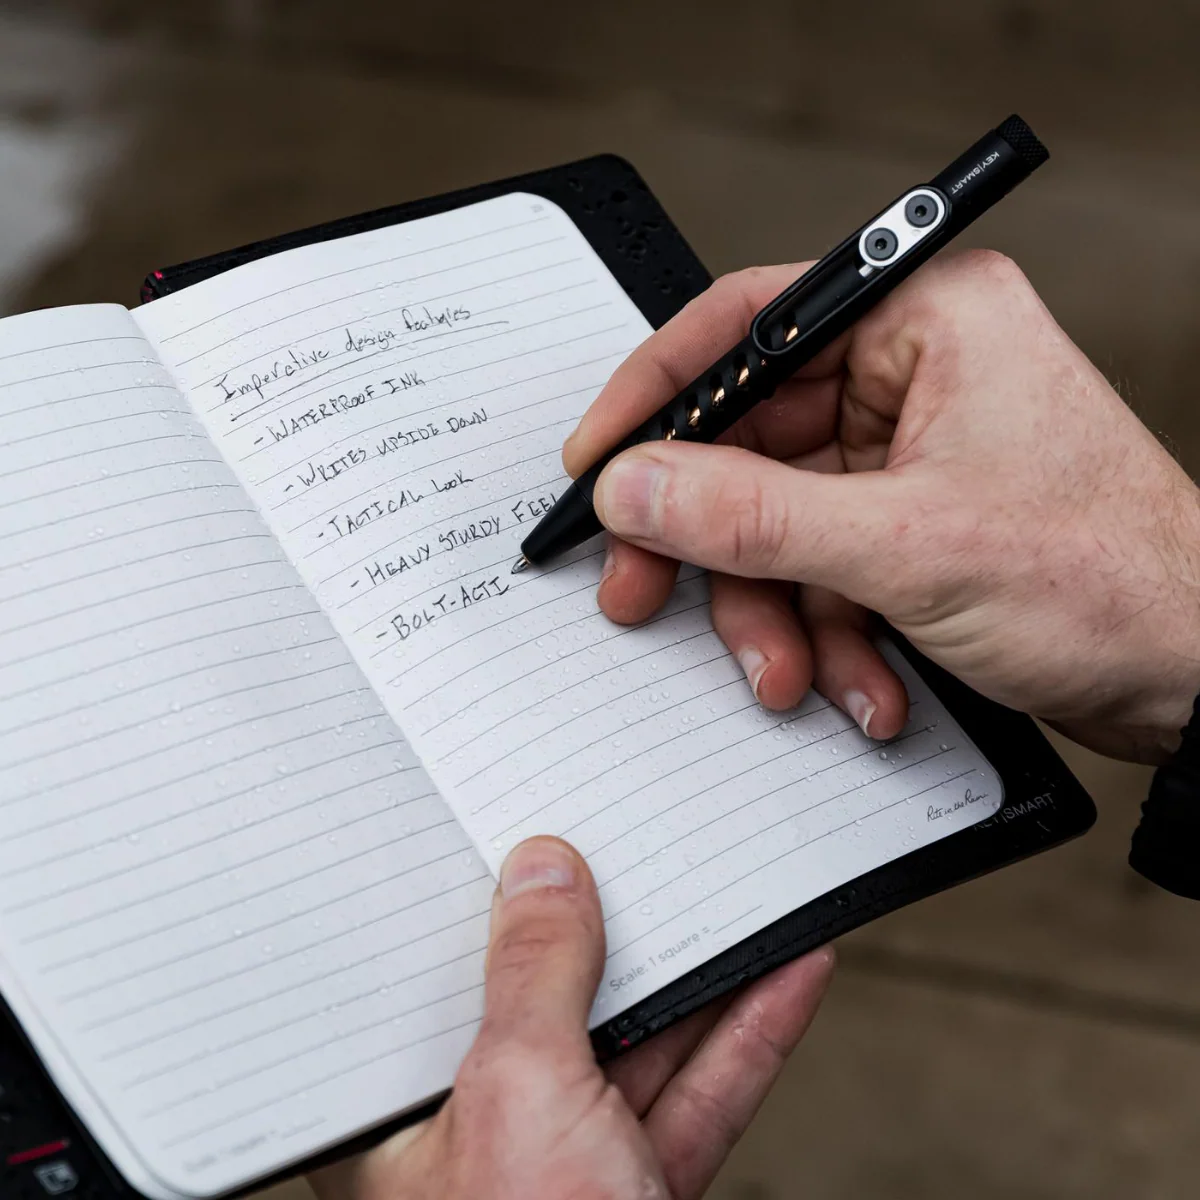 Imperative design features
- WATERPROOF INK
- WRITES UPSIDE DOWN
- TACTICAL LOOK
- HEAVY STURDY FEEL
- BOLT-ACTI
KEY|SMART
Rite in the Rain
KEY|SMART
Scale: 1 square =